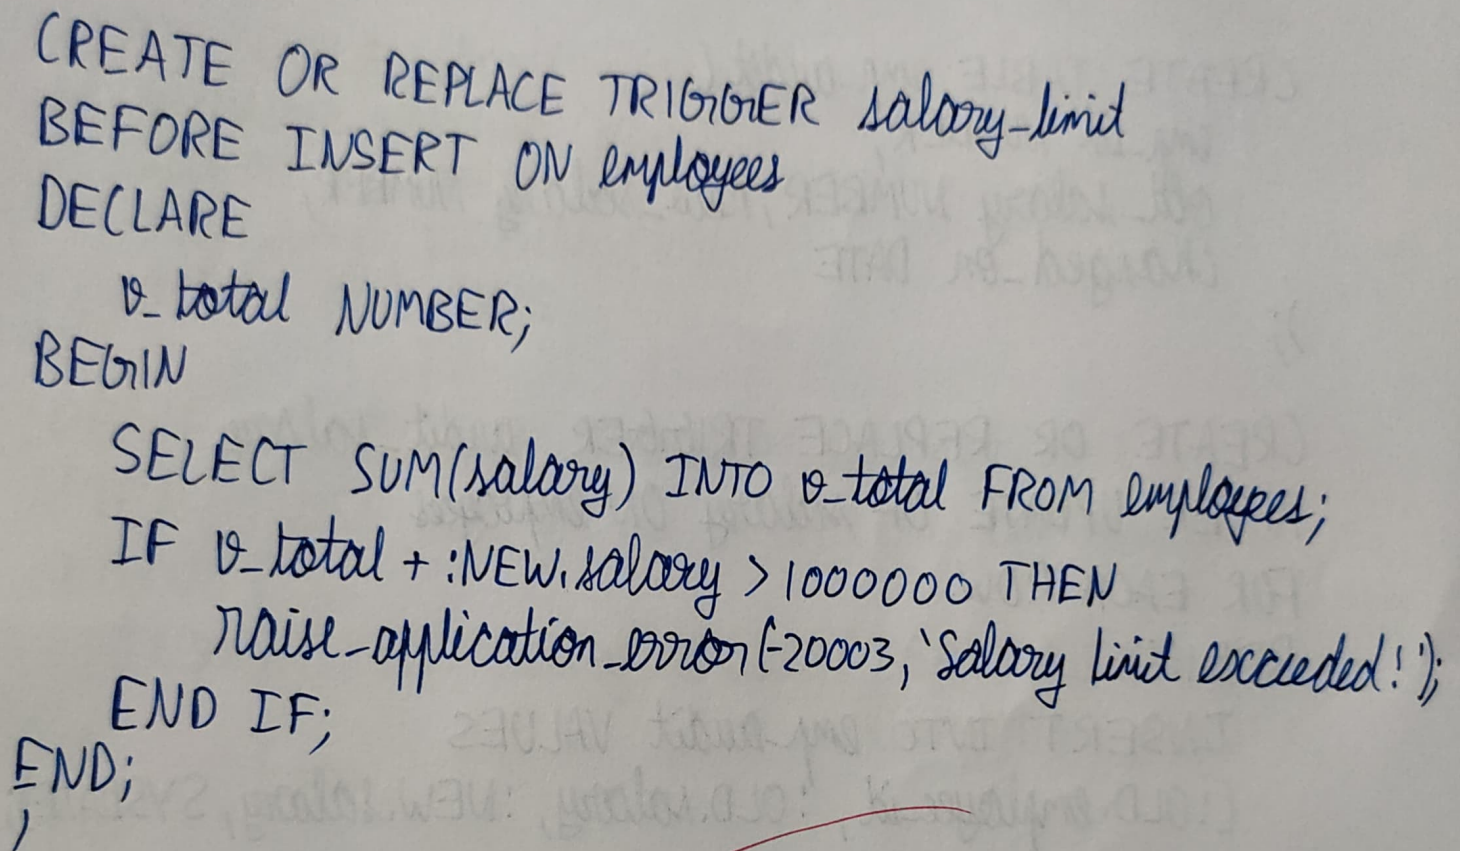 CREATE OR REPLACE TRIGGER salary_limit
BEFORE INSERT ON employees
DECLARE
v_total NUMBER;
BEGIN
SELECT SUM(salary) INTO v_total FROM employees;
IF v_total + :NEW.salary > 1000000 THEN
raise_application_error(-20003, 'Salary limit exceeded!');
END IF;
END;
/